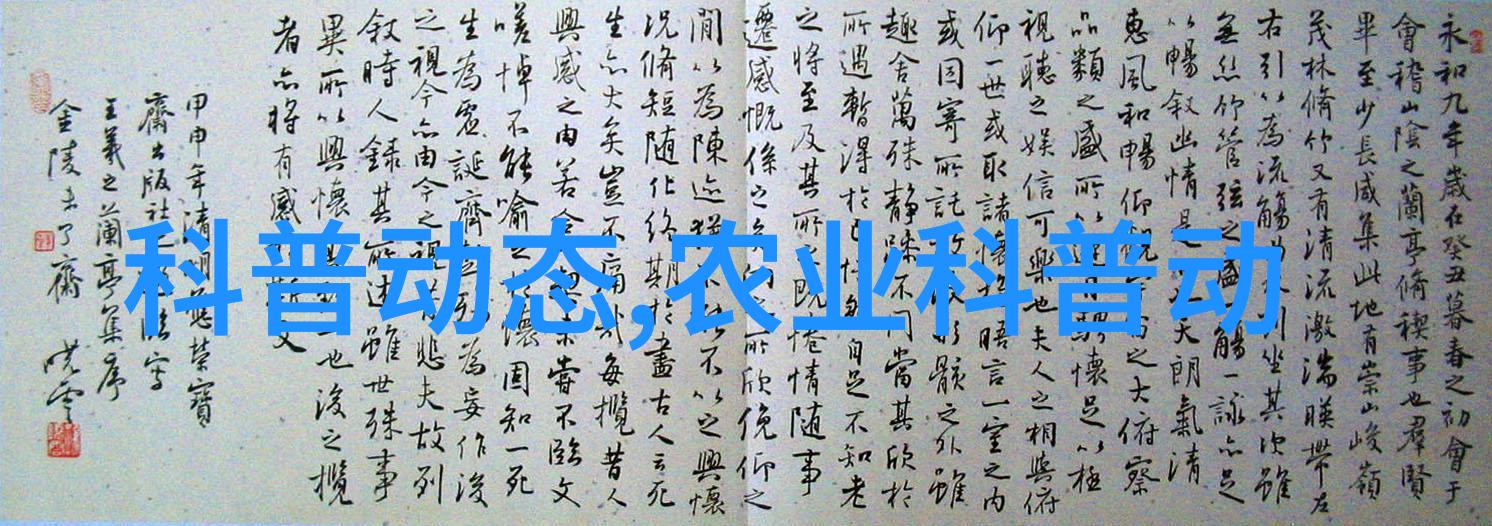 永和九年歲在癸丑暮春之初會于
會稽山陰之蘭亭脩稧事也群賢
畢至少長咸集此地有崇山峻嶺
茂林脩竹又有清流激湍暎帶左
右引以為流觴水列坐其次雖
無絲竹管弦之盛一觴一詠亦足
以暢叙幽情是天朗氣清
惠風和暢仰觀之大俯察
品類之盛所以遊騁懷足以極
視聽之娛信可樂也夫人之相與俯
仰一世或取諸懷抱晤言一室之内
或因寄所託放形骸之外雖
趣舍萬殊靜躁不同當其欣於
所遇暫得於己自足不知老
之將至及其所之既惓情随事
遷感慨係之矣向之所欣俛仰之
閒以為陳迹猶不以之興懷
況脩短随化終期於盡古人云死
生亦大矣豈不痛哉每攬昔人
興感之由若合未嘗不臨文
嗟悼不能喻之懷固知一死
生為虛誕齊為妄作後
之視今亦由今之視昔悲夫故列
叙時人錄其所述雖世殊事
異所以興懷一也後之攬
者亦將有感斯文
甲申年清明應榮寶
齋出版社之臨寫
王羲之蘭亭集序
金陵未了齋
科普动态,农业科普动